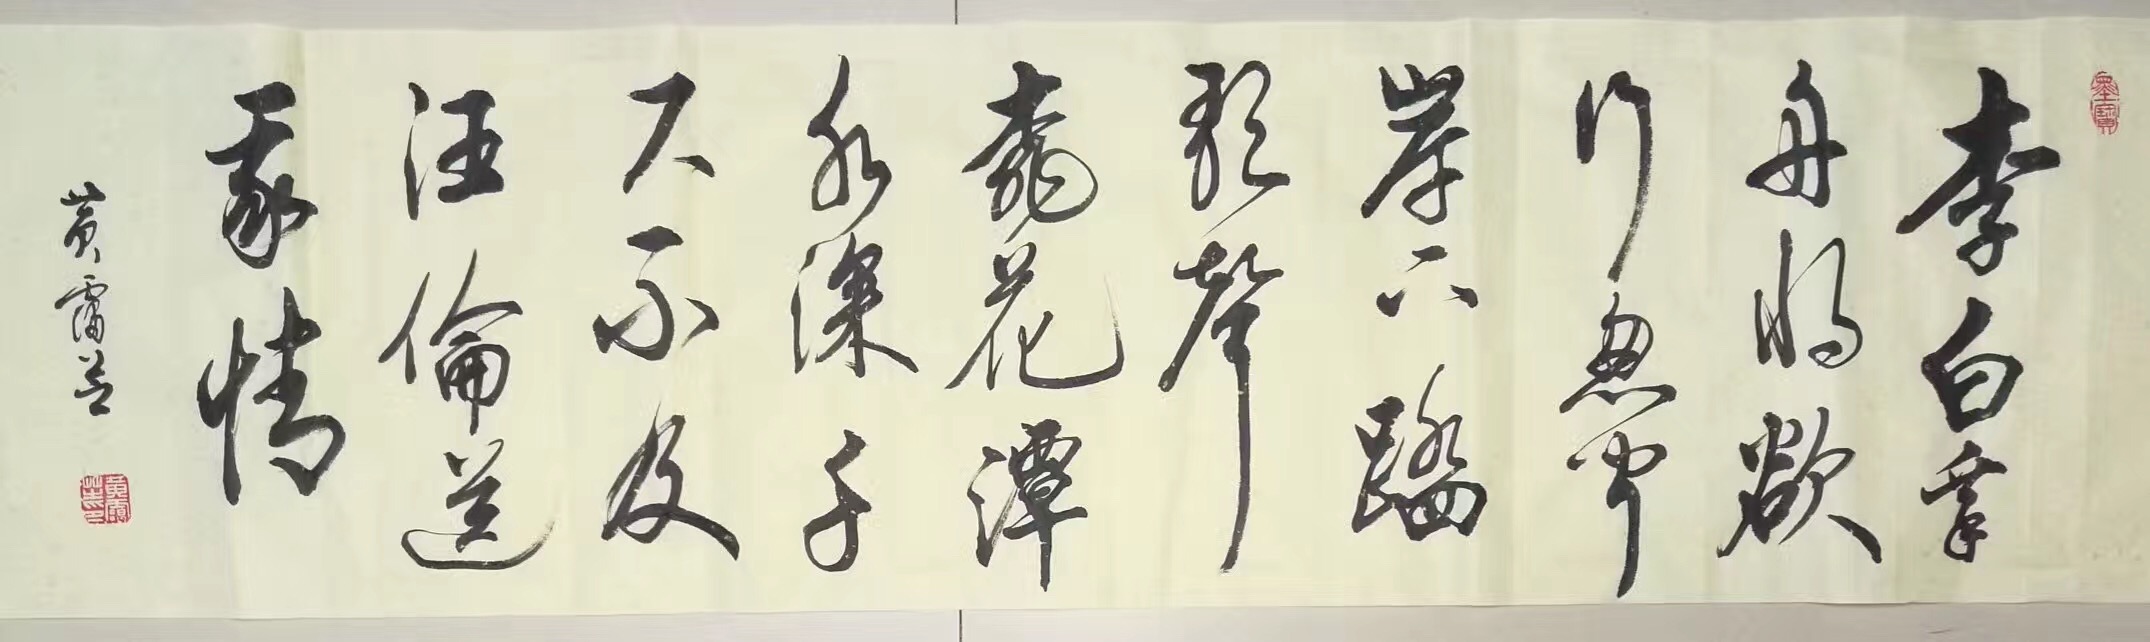 李白乘
舟将欲
行忽闻
岸上踏
歌声
桃花潭
水深千
尺不及
汪倫送
我情
黄霈芸